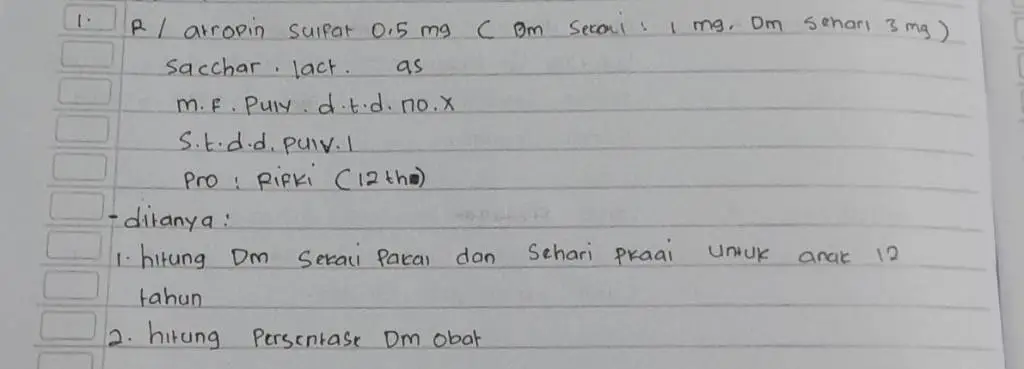 1. R/ atropin sulfat 0.5 mg ( Dm Sekali : 1 mg. Dm sehari 3 mg )
Sacchar . lact. qs
m. F. Pulv. d.t.d. no. X
S.t.d.d. pulv. I
Pro : Rifki (12 th)
- ditanya :
1. hitung Dm Sekali Pakai dan Sehari pkaai untuk anak 12
tahun
2. hitung Persentase Dm obat